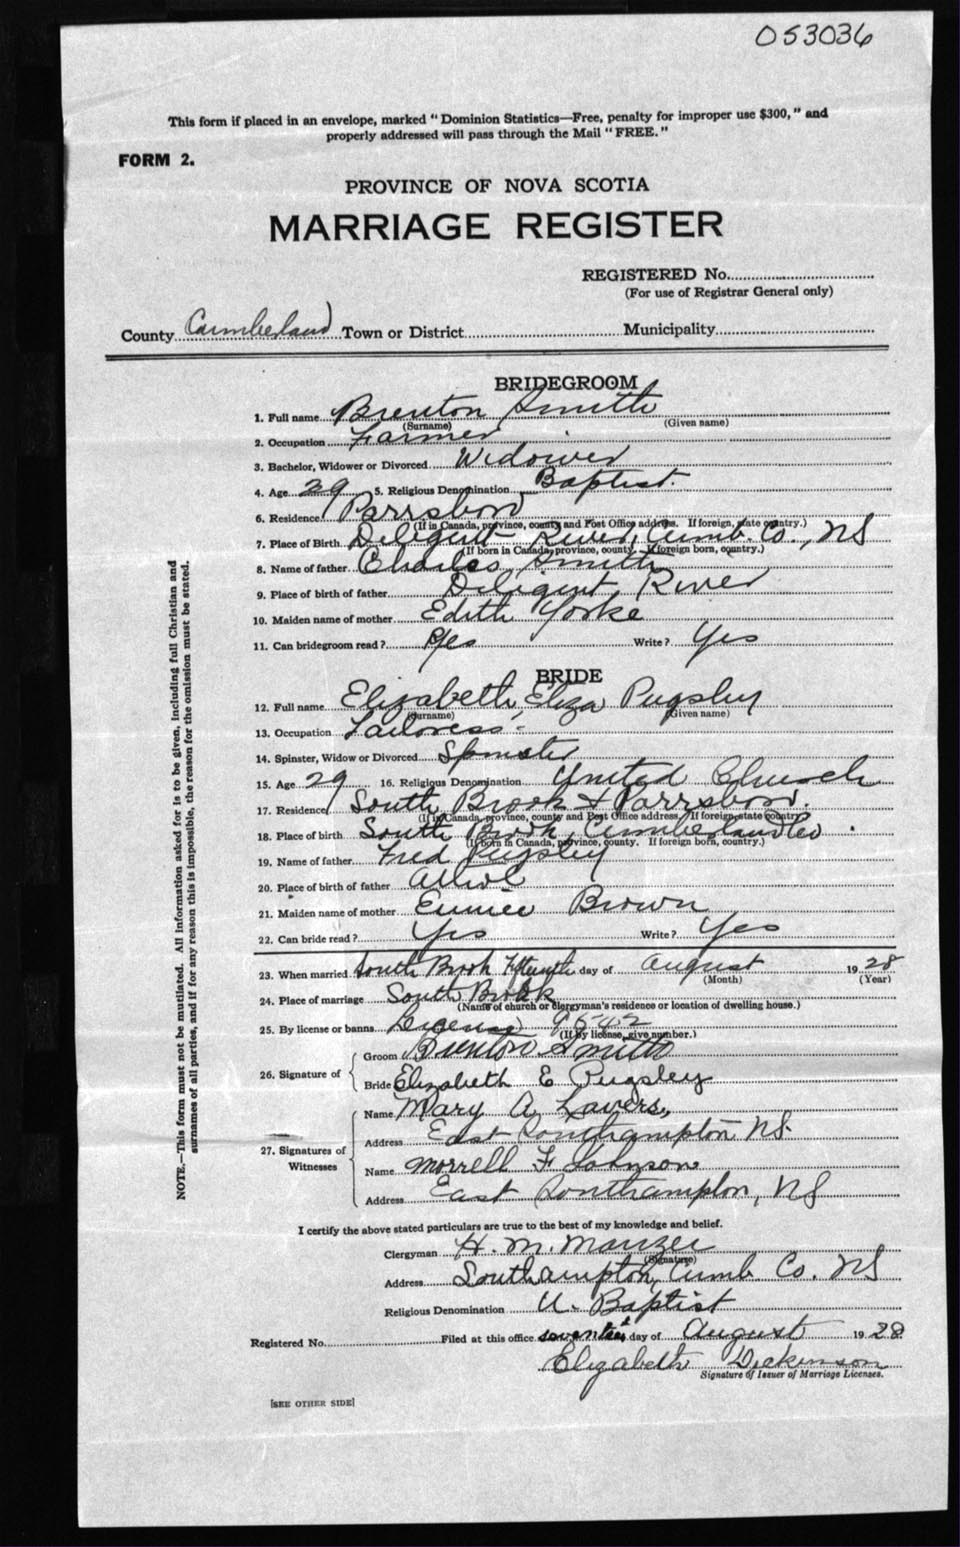 053036
This form if placed in an envelope, marked "Dominion Statistics—Free, penalty for improper use $300," and
properly addressed will pass through the Mail "FREE."
FORM 2.
PROVINCE OF NOVA SCOTIA
MARRIAGE REGISTER
REGISTERED No.
(For use of Registrar General only)
County Cumberland Town or District Municipality
BRIDEGROOM
1. Full name Brenton Smith
(Surname) (Given name)
2. Occupation Farmer
3. Bachelor, Widower or Divorced Widower
4. Age 29 5. Religious Denomination Baptist.
6. Residence Parrsboro
(If in Canada, province, county and Post Office address. If foreign, state country.)
7. Place of Birth Diligent River, Cumb. Co., NS
(If born in Canada, province, county. If foreign born, country.)
8. Name of father Charles Smith
9. Place of birth of father Diligent River
10. Maiden name of mother Edith Yorke
11. Can bridegroom read? Yes Write? Yes
BRIDE
12. Full name Elizabeth Eliza Pugsley
(Surname) (Given name)
13. Occupation Tailoress
14. Spinster, Widow or Divorced Spinster
15. Age 29 16. Religious Denomination United Church
17. Residence South Brook + Parrsboro.
(If in Canada, province, county and Post Office address. If foreign state country)
18. Place of birth South Brook, Cumberland Co
(If born in Canada, province, county. If foreign born, country.)
19. Name of father Fred Pugsley
20. Place of birth of father Athol
21. Maiden name of mother Eunice Brown
22. Can bride read? Yes Write? Yes
23. When married South Brook fifteenth day of August 1928
(Month) (Year)
24. Place of marriage South Brook
(Name of church or clergyman's residence or location of dwelling house.)
25. By license or banns License
(If by license, give number.)
26. Signature of
Groom Brenton Smith
Bride Elizabeth E Pugsley
27. Signatures of Witnesses
Name Mary A. Lavers,
Address East Southampton NS.
Name Morrell F Johnson
Address East Southampton, NS
I certify the above stated particulars are true to the best of my knowledge and belief.
Clergyman H. M. Manzer
(Signature)
Address Southampton, Cumb. Co. NS
Religious Denomination U. Baptist
Registered No. Filed at this office day of August 1928
Elizabeth Dickinson
Signature of Issuer of Marriage Licenses.
[SEE OTHER SIDE]
NOTE.—This form must not be mutilated. All information asked for is to be given, including full Christian and
surnames of all parties, and if for any reason this is impossible, the reason for the omission must be stated.